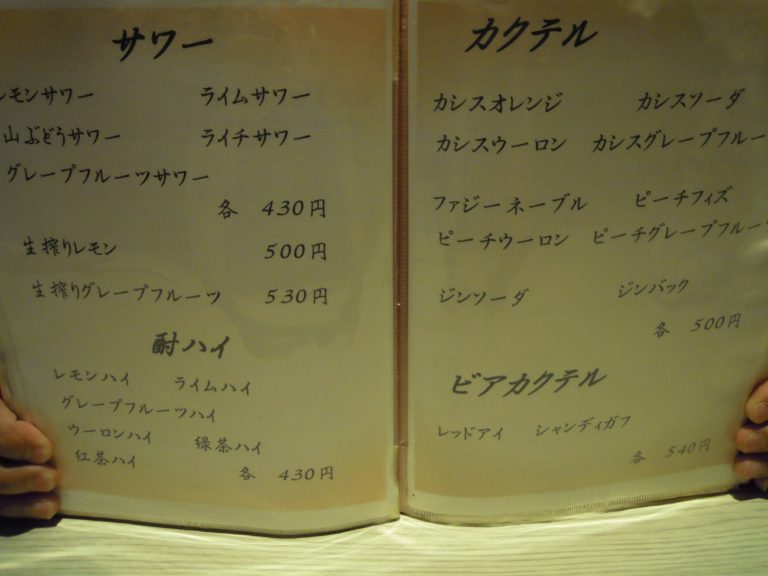 サワー
レモンサワー ライムサワー
山ぶどうサワー ライチサワー
グレープフルーツサワー
各 430円
生搾りレモン 500円
生搾りグレープフルーツ 530円
酎ハイ
レモンハイ ライムハイ
グレープフルーツハイ
ウーロンハイ 緑茶ハイ
紅茶ハイ
各 430円
カクテル
カシスオレンジ カシスソーダ
カシスウーロン カシスグレープフルー
ファジーネーブル ピーチフィズ
ピーチウーロン ピーチグレープフルーツ
ジンソーダ ジンバック
各 500円
ビアカクテル
レッドアイ シャンディガフ
各 540円